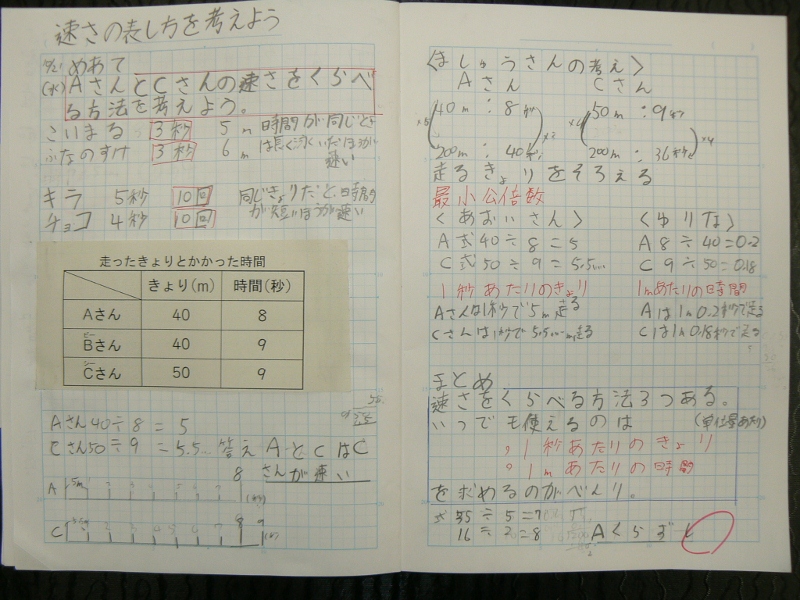 速さの表し方を考えよう
めあて
(水) AさんとCさんの速さをくらべ
る方法を考えよう。
こいまる 3秒 5m 時間が同じとき
は長く泳いだほうが
速い
ふなのすけ 3秒 6m
キラ 5秒 10回 同じきょりだと、時間
が短いほうが速い
チョコ 4秒 10回
走ったきょりとかかった時間
きょり(m) 時間(秒)
Aさん 40 8
Bさん 40 9
Cさん 50 9
Aさん 40÷8=5
Cさん 50÷9=5.5… 答え AとCはC
さんが速い
A 5m 8
C 8 9
〈ましゅうさんの考え〉
Aさん Cさん
40m:8秒 50m:9秒
×5 ×4 ×4
200m:40秒 200m:36秒
走るきょりをそろえる
最小公倍数
〈あおいさん〉 〈ゆりな〉
A式 40÷8=5 A 8÷40=0.2
C式 50÷9=5.5… C 9÷50=0.18
1秒あたりのきょり 1mあたりの時間
Aさんは1秒で5m走る Aは1m0.2秒で走る
Cさんは1秒で5.5…m走る Cは1m0.18秒で走る
まとめ
速さをくらべる方法3つある。
いつでも使えるのは (単位量あたり)
1秒あたりのきょり
1mあたりの時間
を求めるのがべんり。
式 35÷5=7
16÷2=8